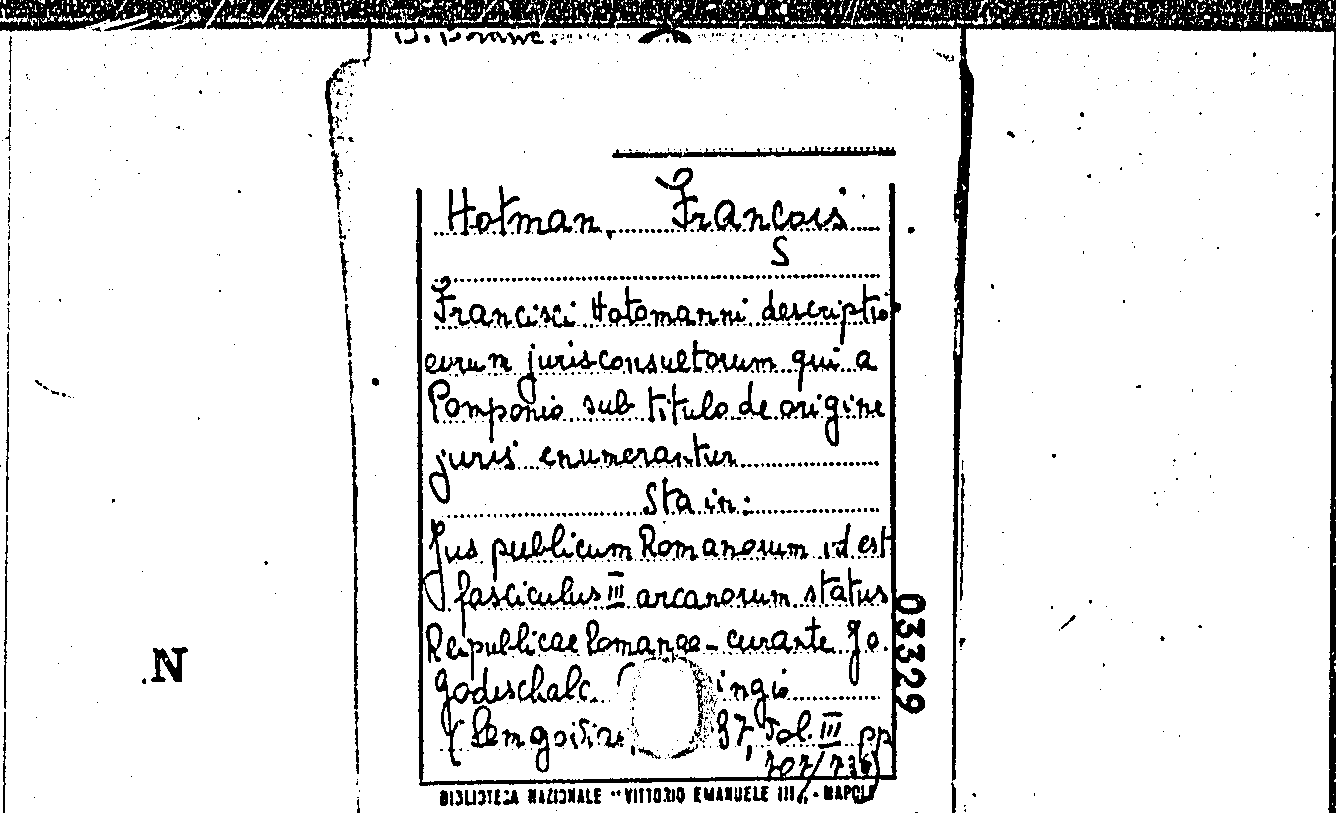 Hotman, François
Francisci Hotomanni descriptio
eorum jurisconsultorum qui a
Pomponio sub titulo de origine
juris enumerantur
Sta in:
Jus publicum Romanorum id est
fasciculus III arcanorum status
Reipublicae Romanae - curante Jo.
Godeschalc ingio
37, Vol. III pp
707/736)
BIBLIOTECA NAZIONALE "VITTORIO EMANUELE III" - NAPOLI
03329
N